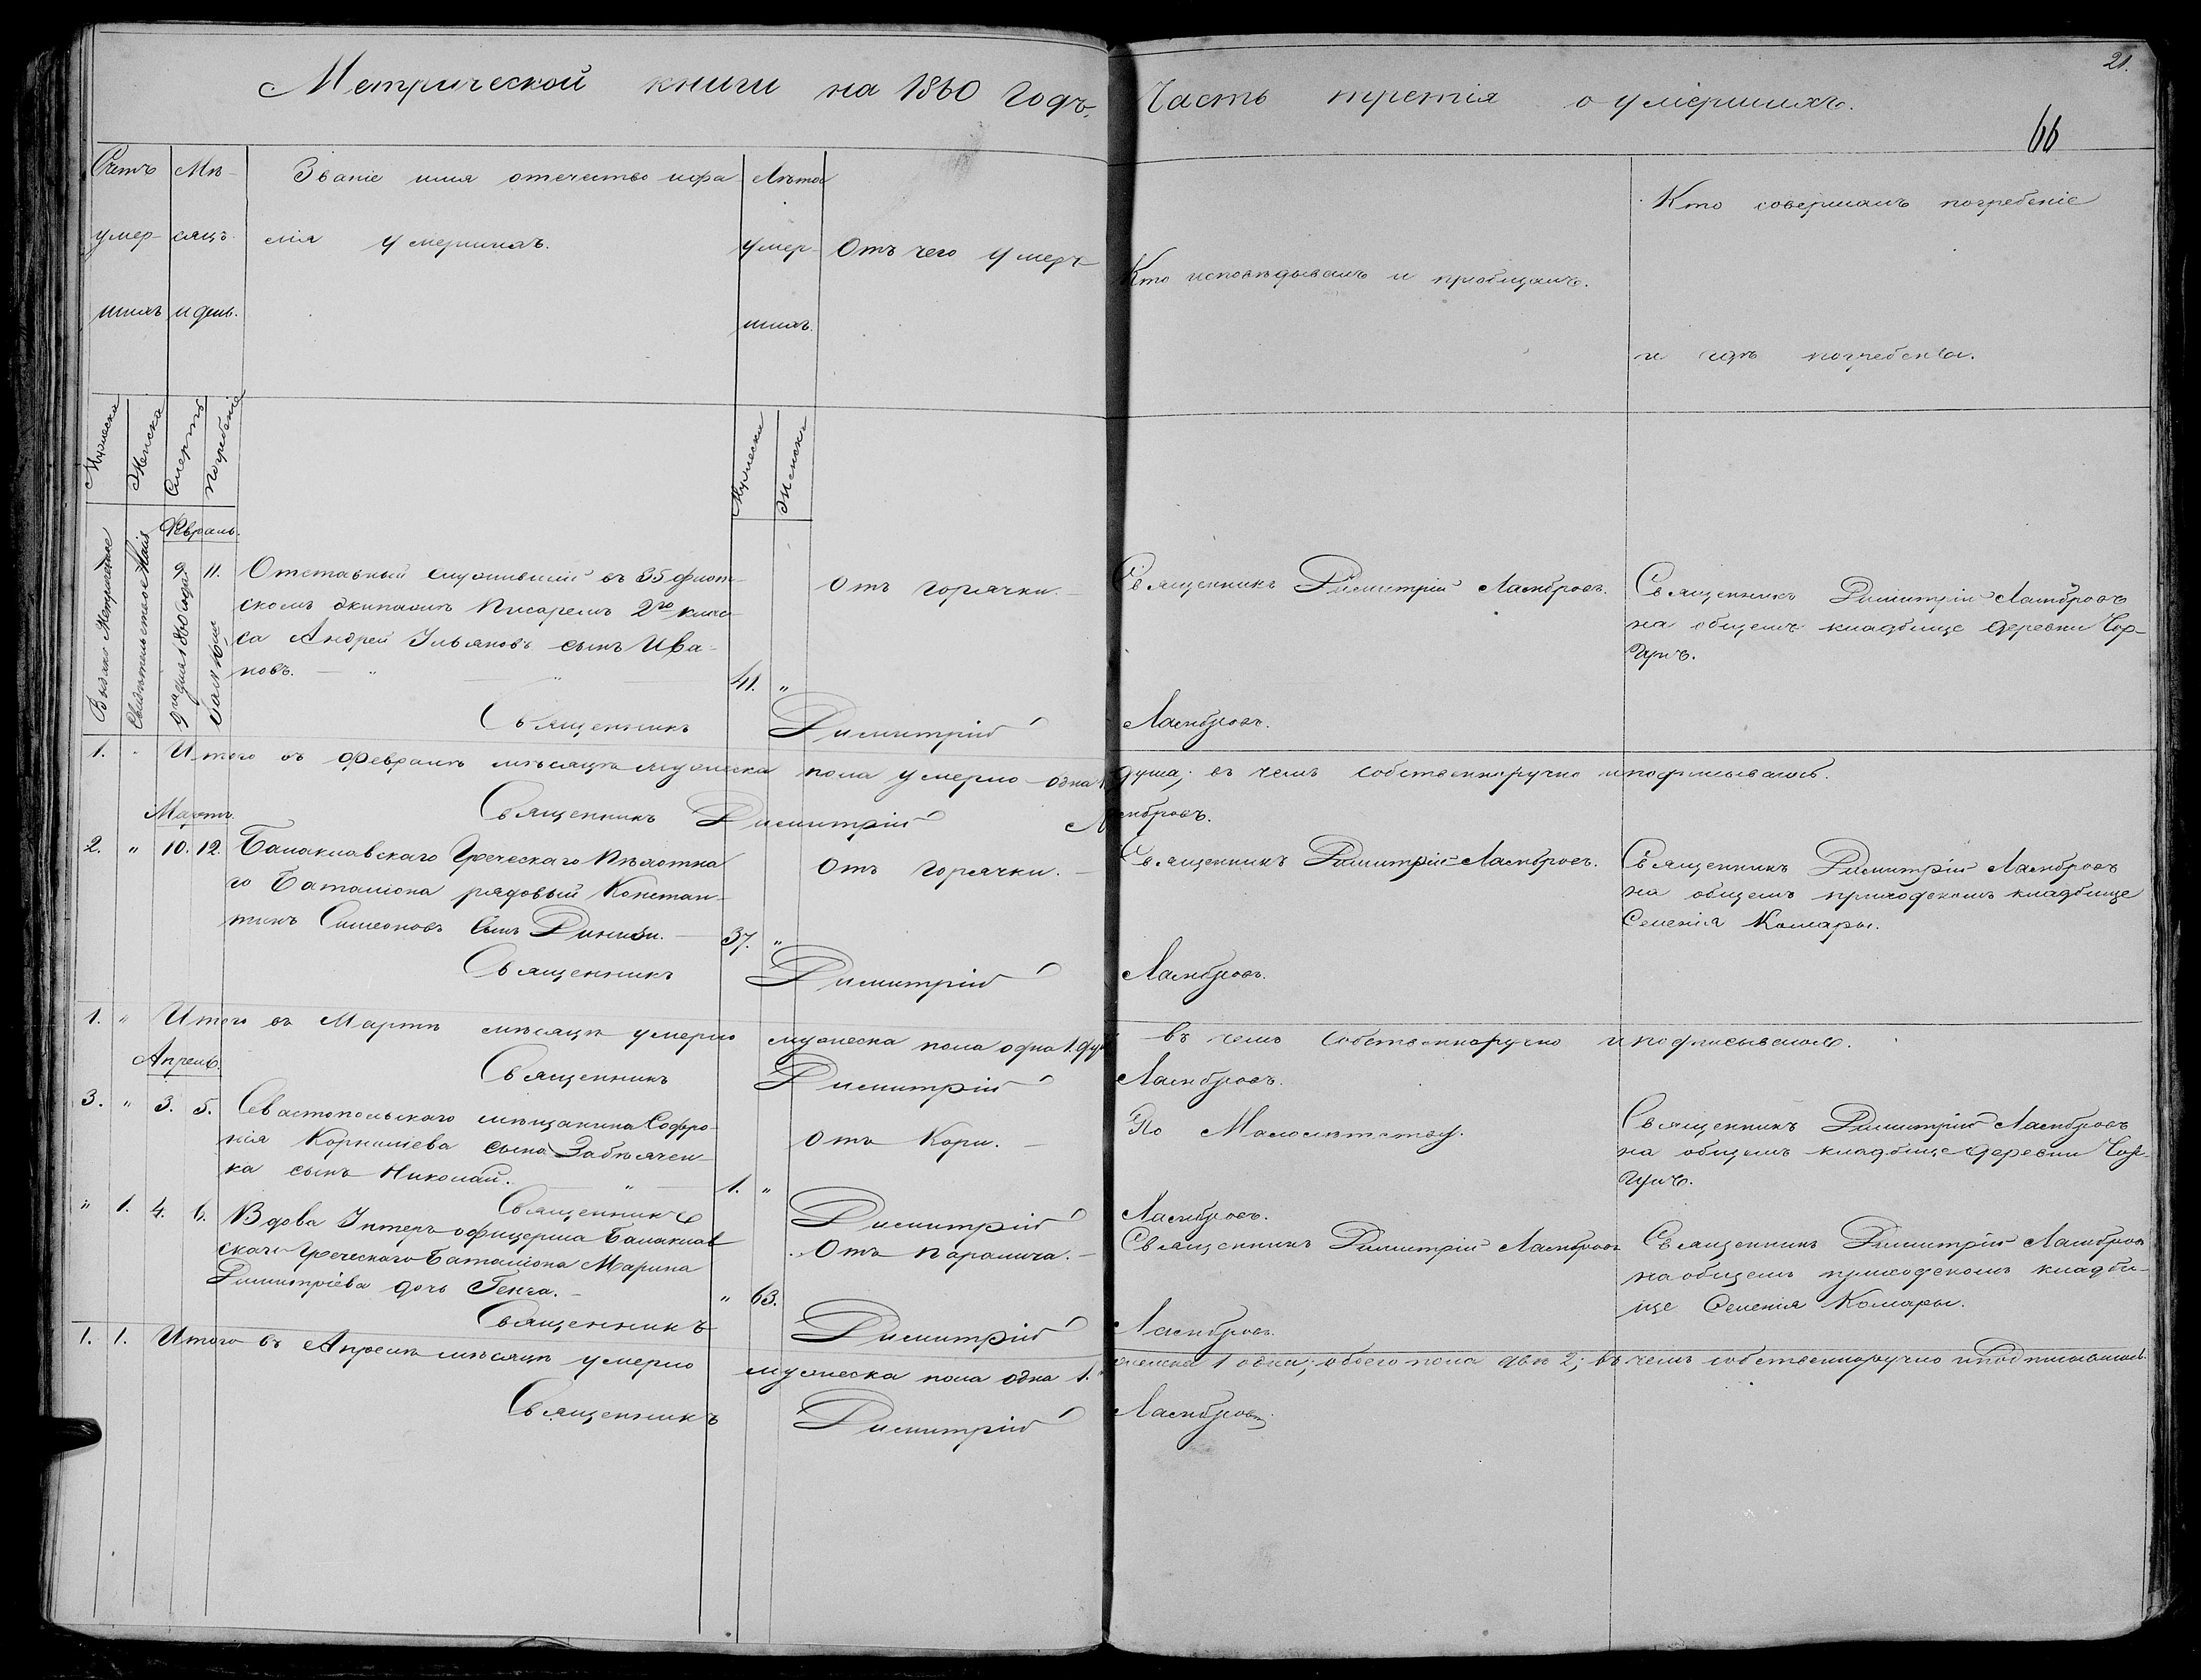 21.
Метрической книги на 1860 годъ. Часть третія о умершихъ.
66
Счетъ умершихъ
Мѣсяцъ и день.
Званіе имя отечество и фамилія умершихъ.
Лѣта умершихъ.
Отъ чего умеръ
Кто исповѣдывалъ и пріобщалъ.
Кто совершалъ погребеніе
и гдѣ погребены.
Мужеска
Женска
Смерть
Погребеніе
Мужеска
Женска
Февраль.
Выдано Метрическое
Свидѣтельство
1860 года
9. 11. Отставный служившій въ 35 флот-
скомъ экипажѣ Писаремъ 2го клас-
са Андрей Ильяновъ сынъ Ива-
новъ. 41. "
Отъ горячки.
Священникъ Димитрій Ламбровъ.
Священникъ Димитрій Ламбровъ
на общемъ кладбище деревни Чор-
гунъ.
Священникъ Димитрій Ламбровъ.
1. " Итого въ Февралѣ мѣсяцѣ мужеска пола умерло одна 1 душа; въ чемъ собственноручно и подписываюсь.
Священникъ Димитрій Ламбровъ.
Мартъ.
2. " 10. 12. Балаклавскаго Греческаго Пѣхотна
го Баталіона рядовый Констан-
тинъ Симеоновъ сынъ 37. "
Отъ горячки.
Священникъ Димитрій Ламбровъ.
Священникъ Димитрій Ламбровъ
на общемъ приходскомъ кладбище
Селенія Комары.
Священникъ Димитрій Ламбровъ.
1. " Итого въ Мартѣ мѣсяцѣ умерло мужеска пола одна 1. въ чемъ собственноручно и подписываюсь.
Священникъ Димитрій Ламбровъ.
Апрель.
3. " 3. 5. Севастопольскаго мѣщанина Софро-
нія Корнилiева сына
ка сынъ Николай. 1. "
Отъ Кори.
По Малолѣтству.
Священникъ Димитрій Ламбровъ
на общемъ кладбище деревни Чор-
гунъ.
Священникъ Димитрій Ламбровъ.
" 1. 4. 6. Вдова Унтеръ офицерша Балаклав
скаго Греческаго Баталіона Марина
Димитріева дочь 63.
Отъ Паралича.
Священникъ Димитрій Ламбровъ
Священникъ Димитрій Ламбровъ
на общемъ приходскомъ кладби-
ще Селенія Комары.
Священникъ Димитрій Ламбровъ.
1. 1. Итого въ Апрелѣ мѣсяцѣ умерло мужеска пола одна 1. женска 1 одна; обоего пола двѣ 2; въ чемъ собственноручно и подписываюсь.
Священникъ Димитрій Ламбровъ